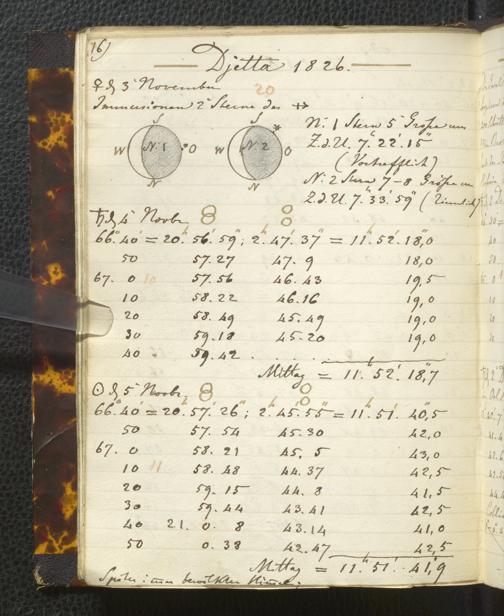 16)
Djetta 1826.
♀ d 3 November
20
Immersionen 2 Sterne der ♐
S
W N.1 O
N
S
W N.2 O
N
N: 1 Stern 5 Größe um
Z.d.U. 7. 22'. 15
(Vortrefflich)
N: 2 Stern 7-8 Größe um
Z.d.U. 7. 33. 59" (Ziemlich)
♄ d 4 Novbr
66°. 40' = 20. 56'. 59"; 2. 47'. 37" = 11. 52'. 18,0
50 57. 27 47. 9 18,0
67. 0 10 57. 56 46. 43 19,5
10 58. 22 46. 16 19,0
20 58. 49 45. 49 19,0
30 59. 18 45. 20 19,0
40 59. 42 . . . . .
Mittag = 11. 52'. 18",7
☉ d 5 Novbr
66°. 40' = 20. 57'. 26"; 2. 45'. 55" = 11. 51'. 40",5
50 57. 54 45. 30 42,0
67. 0 58. 21 45. 5 43,0
10 11 58. 48 44. 37 42,5
20 59. 15 44. 8 41,5
30 59. 44 43. 41 42,5
40 21. 0. 8 43. 14 41,0
50 0. 38 42. 47 42,5
Mittag = 11. 51'. 41",9
Später